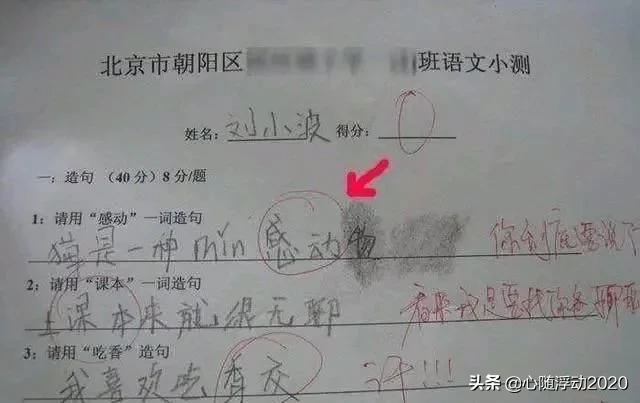 北京市朝阳区 班语文小测
姓名：刘小波 得分：0
一：造句 （40分）8分/题
1：请用“感动”一词造句
猫是一种min感动物 你到底要说什
2：请用“课本”一词造句
上课本来就很无聊 看来我是要找你爸聊聊
3：请用“吃香”造句
我喜欢吃香交 汗!!!
头条 @心随浮动2020